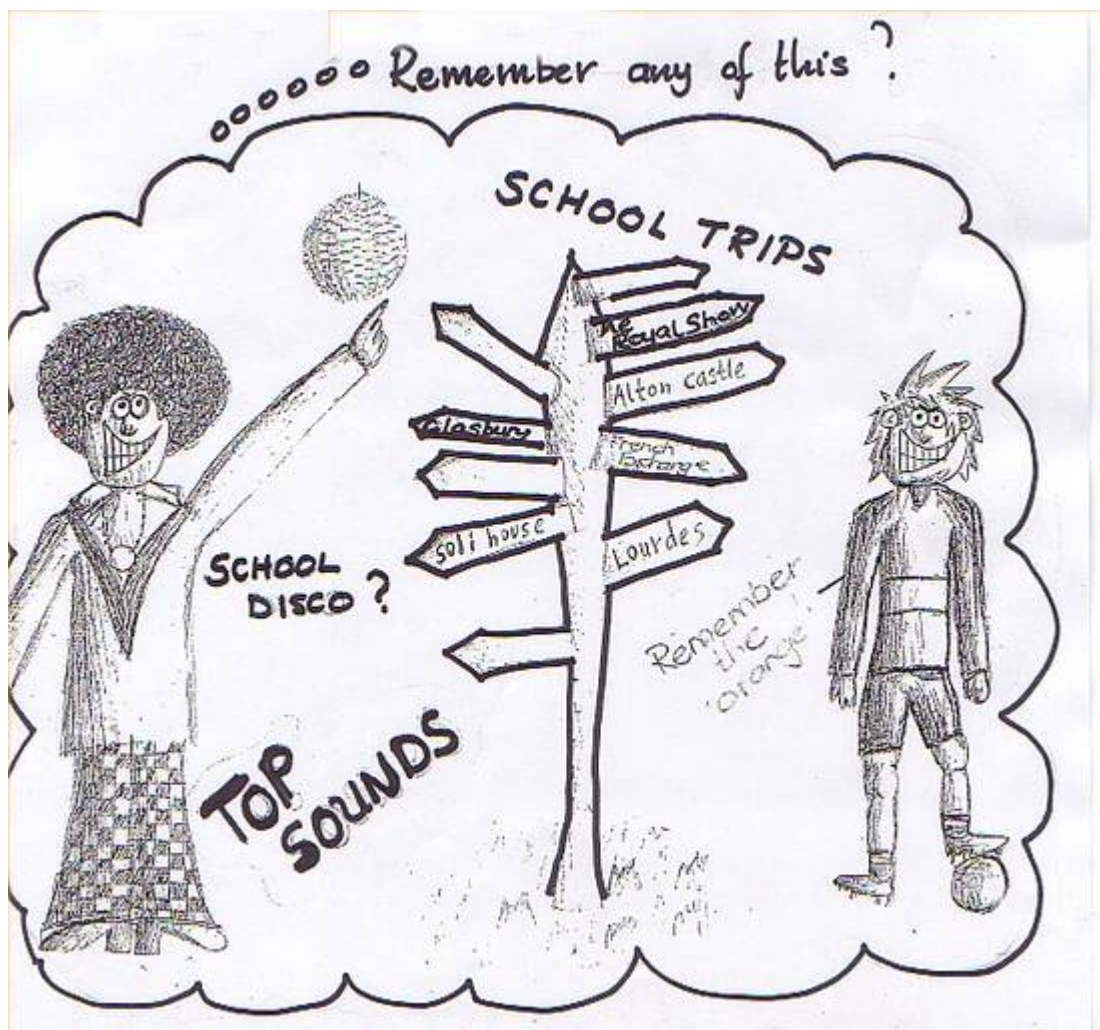 Remember any of this?
SCHOOL TRIPS
The
Royal Show
Alton Castle
Glasbury
French
Exchange
Soli house
Lourdes
SCHOOL
DISCO?
Remember
the
orange
TOP
SOUNDS